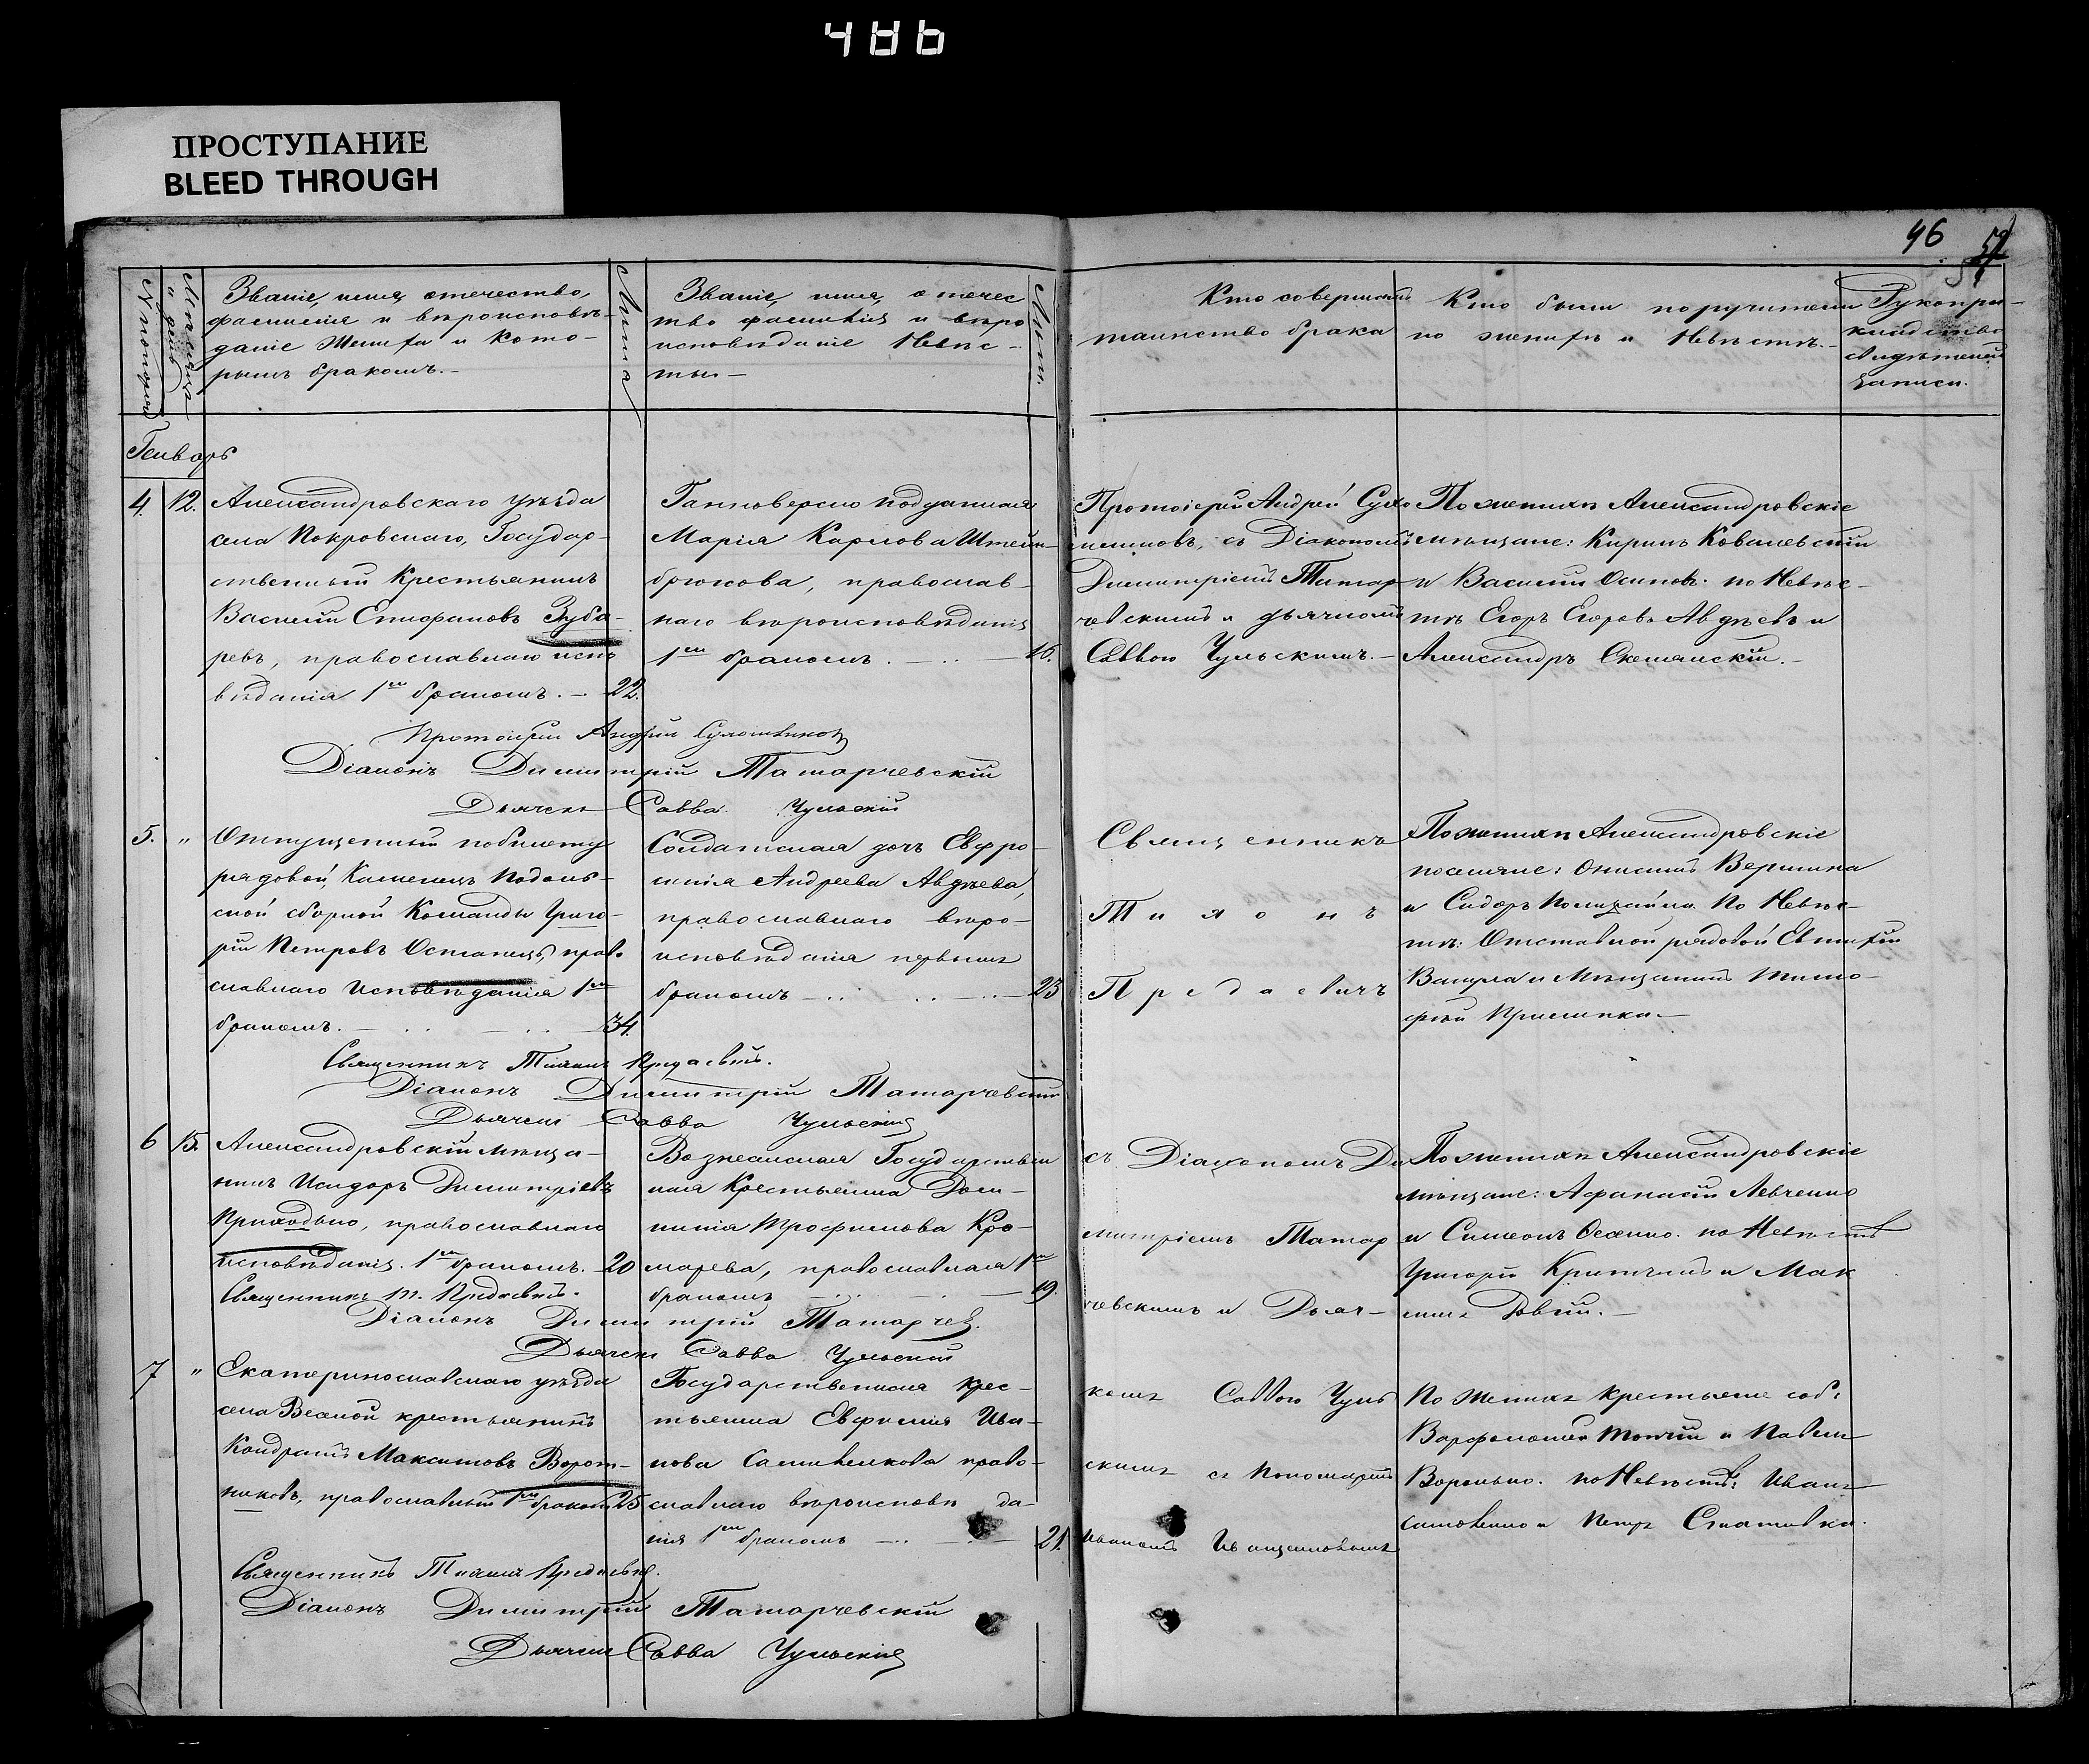 486
ПРОСТУПАНИЕ
BLEED THROUGH
46
№ по порядку
Мѣсяцъ и день
Званіе, имя, отечество,
фамилія и вѣроисповѣ-
даніе Жениха и кото-
рымъ бракомъ.-
Лѣта
Званіе, имя, отечес
тво фамилія и вѣро
исповѣданіе Невѣс-
ты-
Лѣт.
Кто совершалъ
таинство брака
Кто были поручители
по женихѣ и Невѣстѣ.-
Рукопри-
кладство
свидѣтелей
записи.
Генварь
4. 12. Александровскаго уѣзда
села Покровскаго, Государ-
ственный Крестьянинъ
Василій Епифановъ Зуба-
ревъ, православнаго испо
вѣданія 1ым бракомъ. - 22.
Ганноверско подданная
Марія Карлова Штейн-
брюкова, православ-
наго вѣроисповѣданія
1ым бракомъ. 16.
Протоіерей Андрей Сухо
мешковъ, съ Діакономъ
Димитріемъ Татар-
чевскимъ и дьячкомъ
Саввою Чульскимъ.-
По женихѣ Александровскіе
мѣщане: Кирилъ Ковалевскій
и Василій Осиповъ. по Невѣс-
тѣ Егоръ Егоровъ Авдѣевъ и
Александръ
Протоіерей Андрей
Діаконъ Димитрій Татарчевскій
Дьячекъ Савва Чульскій
5. " Отпущенный по билету
рядовой, Каменецъ Подоль-
ской сборной Команды Григо-
рій Петровъ Остапецъ, прав.
славнаго Исповѣданія 1ым
бракомъ. - 34.
Солдатская дочь Евфро-
синія Андреева Авдѣева,
православнаго вѣро-
исповѣданія первымъ
бракомъ - 23
Священникъ
Тихонъ
Предаевичъ
По женихѣ Александровскіе
поселяне: Онисимъ Вершина
и Сидоръ по Невѣс-
тѣ: Отставной рядовой Евтихій
Вакула и Мѣщанинъ Тимо-
фѣй
Священникъ Тихонъ Предаевичъ.
Діаконъ Димитрій Татарчевскій
Дьячекъ Савва Чульскій
6 15. Александровскій мѣща-
нинъ Исидоръ Димитріевъ
Приходько, православнаго
исповѣданія. 1ым бракомъ. - 20
Вознесенская Государствен
ная Крестьянка Дом-
никія Трофимова Кро-
марева, православная 1ым
бракомъ 19.
съ Діакономъ Ди
митріемъ Татар
чевскимъ и Дьяч-
По женихѣ Александровскіе
мѣщане: Афанасій Левченко
и Симеонъ по Невѣстѣ
Григорій и Мак
симъ Довгій.-
Священникъ Т. Предаевичъ.
Діаконъ Димитрій Татарчев.
Дьячекъ Савва Чульскій
7 " Екатеринославскаго уѣзда
села Веселой крестьянинъ
Кондратъ Максимовъ Ворот-
никовъ, православный 1ым бракомъ 25
Государственная крес-
тьянка Евфимія Ива-
нова Сапивенкова право-
славнаго вѣроисповѣда-
нія 1ым бракомъ 21.
комъ Саввою Чуль
скимъ съ Пономаремъ
Иваномъ
По Женихѣ крестьяне соб:
Варфоломей и Павелъ
Воронько. по Невѣстѣ: Иванъ
и Петръ Стативка.
Священникъ Тихонъ Предаевичъ.
Діаконъ Димитрій Татарчевскій
Дьячекъ Савва Чульскій